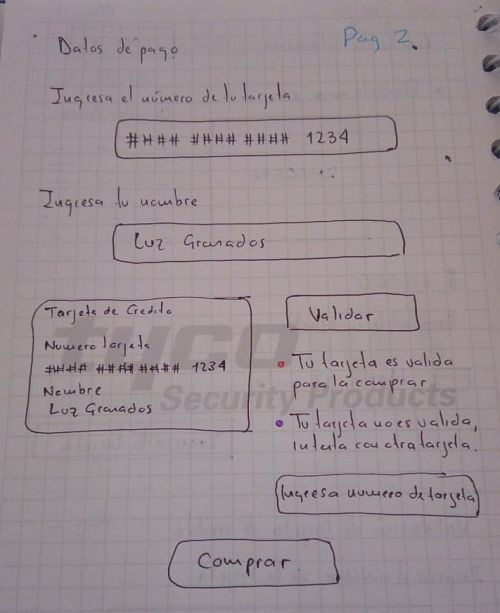 Datos de pago
Pag 2.
Ingresa el número de tu tarjeta
#### #### #### 1234
Ingresa tu nombre
Luz Granados
Tarjeta de Credito
Numero tarjeta
#### #### #### 1234
Nombre
Luz Granados
Validar
Tu tarjeta es valida
para la comprar
Tu tarjeta no es valida,
intenta con otra tarjeta.
Ingresa numero de tarjeta
Comprar.
tyco
Security Products